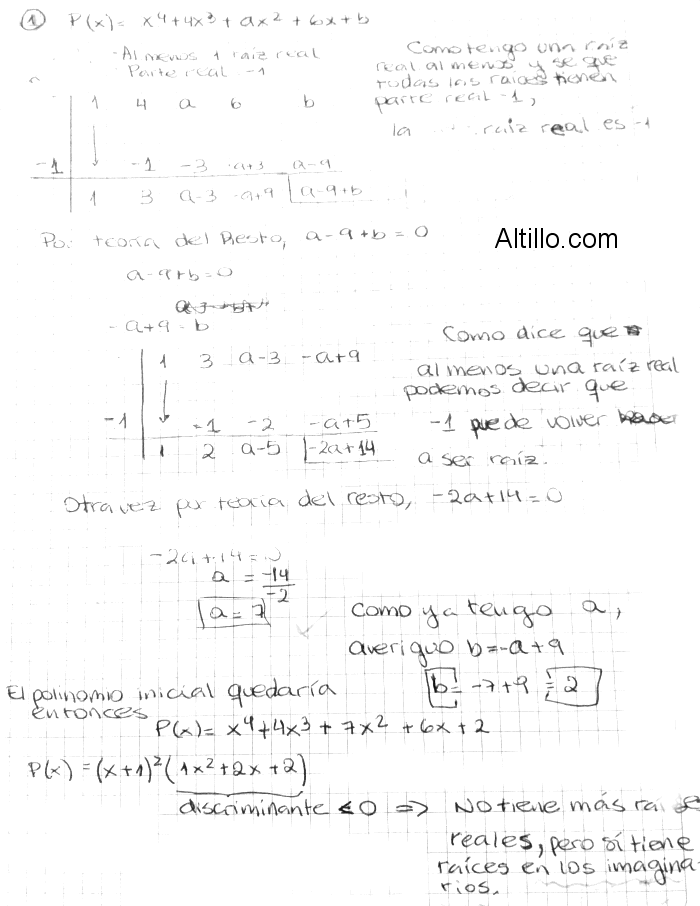 ① P(x)= x⁴+4x³+ax²+6x+b
Al menos 1 raíz real
Parte real -1
Como tengo una raíz
real al menos y se que
todas las raíces tienen
parte real -1,
la raíz real es -1
1 4 a 6 b
-1 -1 -3 -a+3 a-9
1 3 a-3 -a+9 a-9+b
Por teoría del Resto, a-9+b=0
Altillo.com
a-9+b=0
-a+9=b
1 3 a-3 -a+9
-1 -1 -2 -a+5
1 2 a-5 -2a+14
Como dice que
al menos una raíz real
podemos decir que
-1 puede volver
a ser raíz.
Otra vez por teoría del resto, -2a+14=0
-2a+14=0
a = -14/-2
a=7
Como ya tengo a,
averiguo b=-a+9
b=-7+9=2
El polinomio inicial quedaría
entonces
P(x)= x⁴+4x³+7x²+6x+2
P(x)=(x+1)²(1x²+2x+2)
discriminante <0 => No tiene más
reales, pero sí tiene
raíces en los imagina-
rios.